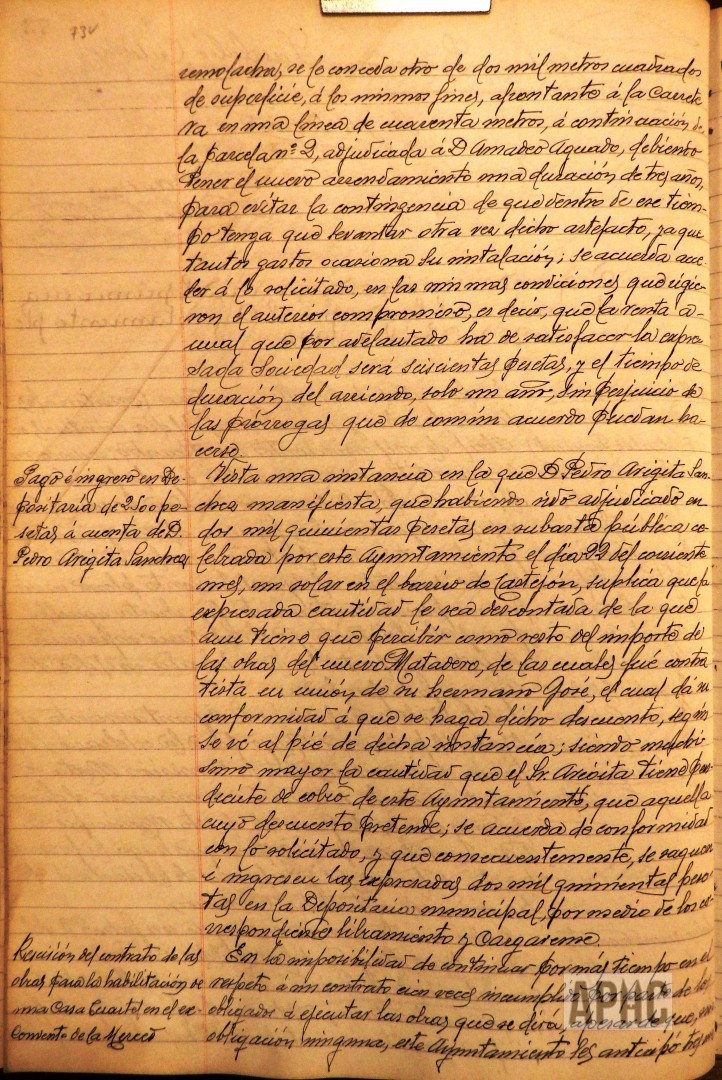 73v
remolacha, se le conceda otro de dos mil metros cuadrados
de superficie, á los mismos fines, afrontante á la Carrete
ra en una linea de cuarenta metros, á continuación de
la parcela nº 2, adjudicada á D Amadeo Aguado, debiendo
tener el nuevo arrendamiento una duración de tres años,
para evitar la contingencia de que dentro de ese tiem-
po tenga que levantar otra vez dicho artefacto, ya que
tantos gastos ocasiona su instalación; se acuerda acce-
der á lo solicitado, en las mismas condiciones que rigie-
ron el anterior compromiso, es decir, que la renta a-
nual que por adelantado ha de satisfacer la expre-
sada Sociedad será seiscientas pesetas, y el tiempo de
duración del arriendo, solo un año, sin perjuicio de
las prórrogas que de común acuerdo puedan ha-
cerse.
Pago é ingreso en De-
positaria de 2500 pe-
setas á cuenta de D.
Pedro Arigita Sanchez
Vista una instancia en la que D Pedro Arigita San-
chez manifiesta, que habiendo sido adjudicado en
dos mil quinientas pesetas en subasta pública ce-
lebrada por este Ayuntamiento el dia 22 del corriente
mes, un solar en el barrio de Castejón, suplica que la
expresada cantidad le sea descontada de la que
aun tiene que percibir como resto del importe de
las obras del nuevo Matadero, de las cuales fué contra
tista en unión de su hermano José, el cual dá su
conformidad á que se haga dicho descuento, según
se vé al pié de dicha instancia; siendo muchi
simo mayor la cantidad que el Sr. Arigita tiene pen
diente de cobro de este Ayuntamiento, que aquella
cuyo descuento pretende; se acuerda de conformidad
con lo solicitado, y que consecuentemente, se saquen
é ingresen las expresadas dos mil quinientas pese
tas en la Depositaria municipal, por medio de los co-
rrespondientes libramiento y Cargareme.
Rescisión del contrato de las
obras para la habilitación de
una Casa Cuartel en el ex-
Convento de la Merced
En la imposibilidad de continuar por más tiempo en el
respeto á un contrato cien veces incumplido por parte de los
obligados á ejecutar las obras que se dirá, apesar de que, sin
obligación ninguna, este Ayuntamiento les anticipó
APHC